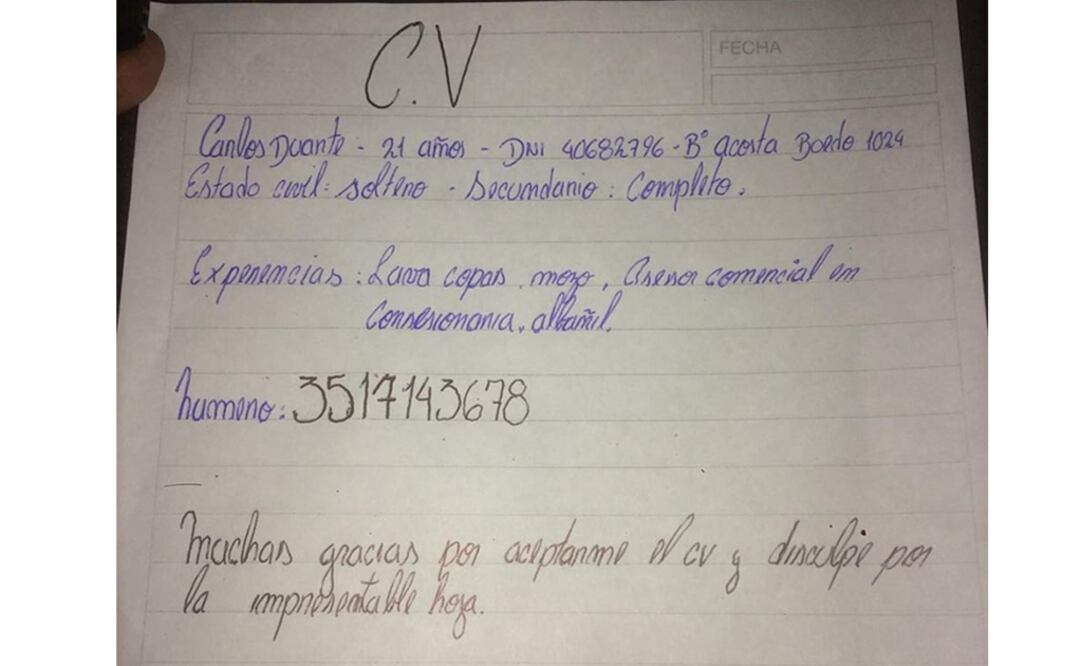 C.V
FECHA
Carlos Duarte - 21 años - DNI 40682796 - B° Acosta Boedo 1024
Estado civil: soltero - Secundario: Completo.
Experiencias: Lava copas, mozo, Asesor comercial en
Consesionaria, albañil.
Numero: 3517143678
Muchas gracias por aceptarme el cv y disculpe por
la impresentable hoja.